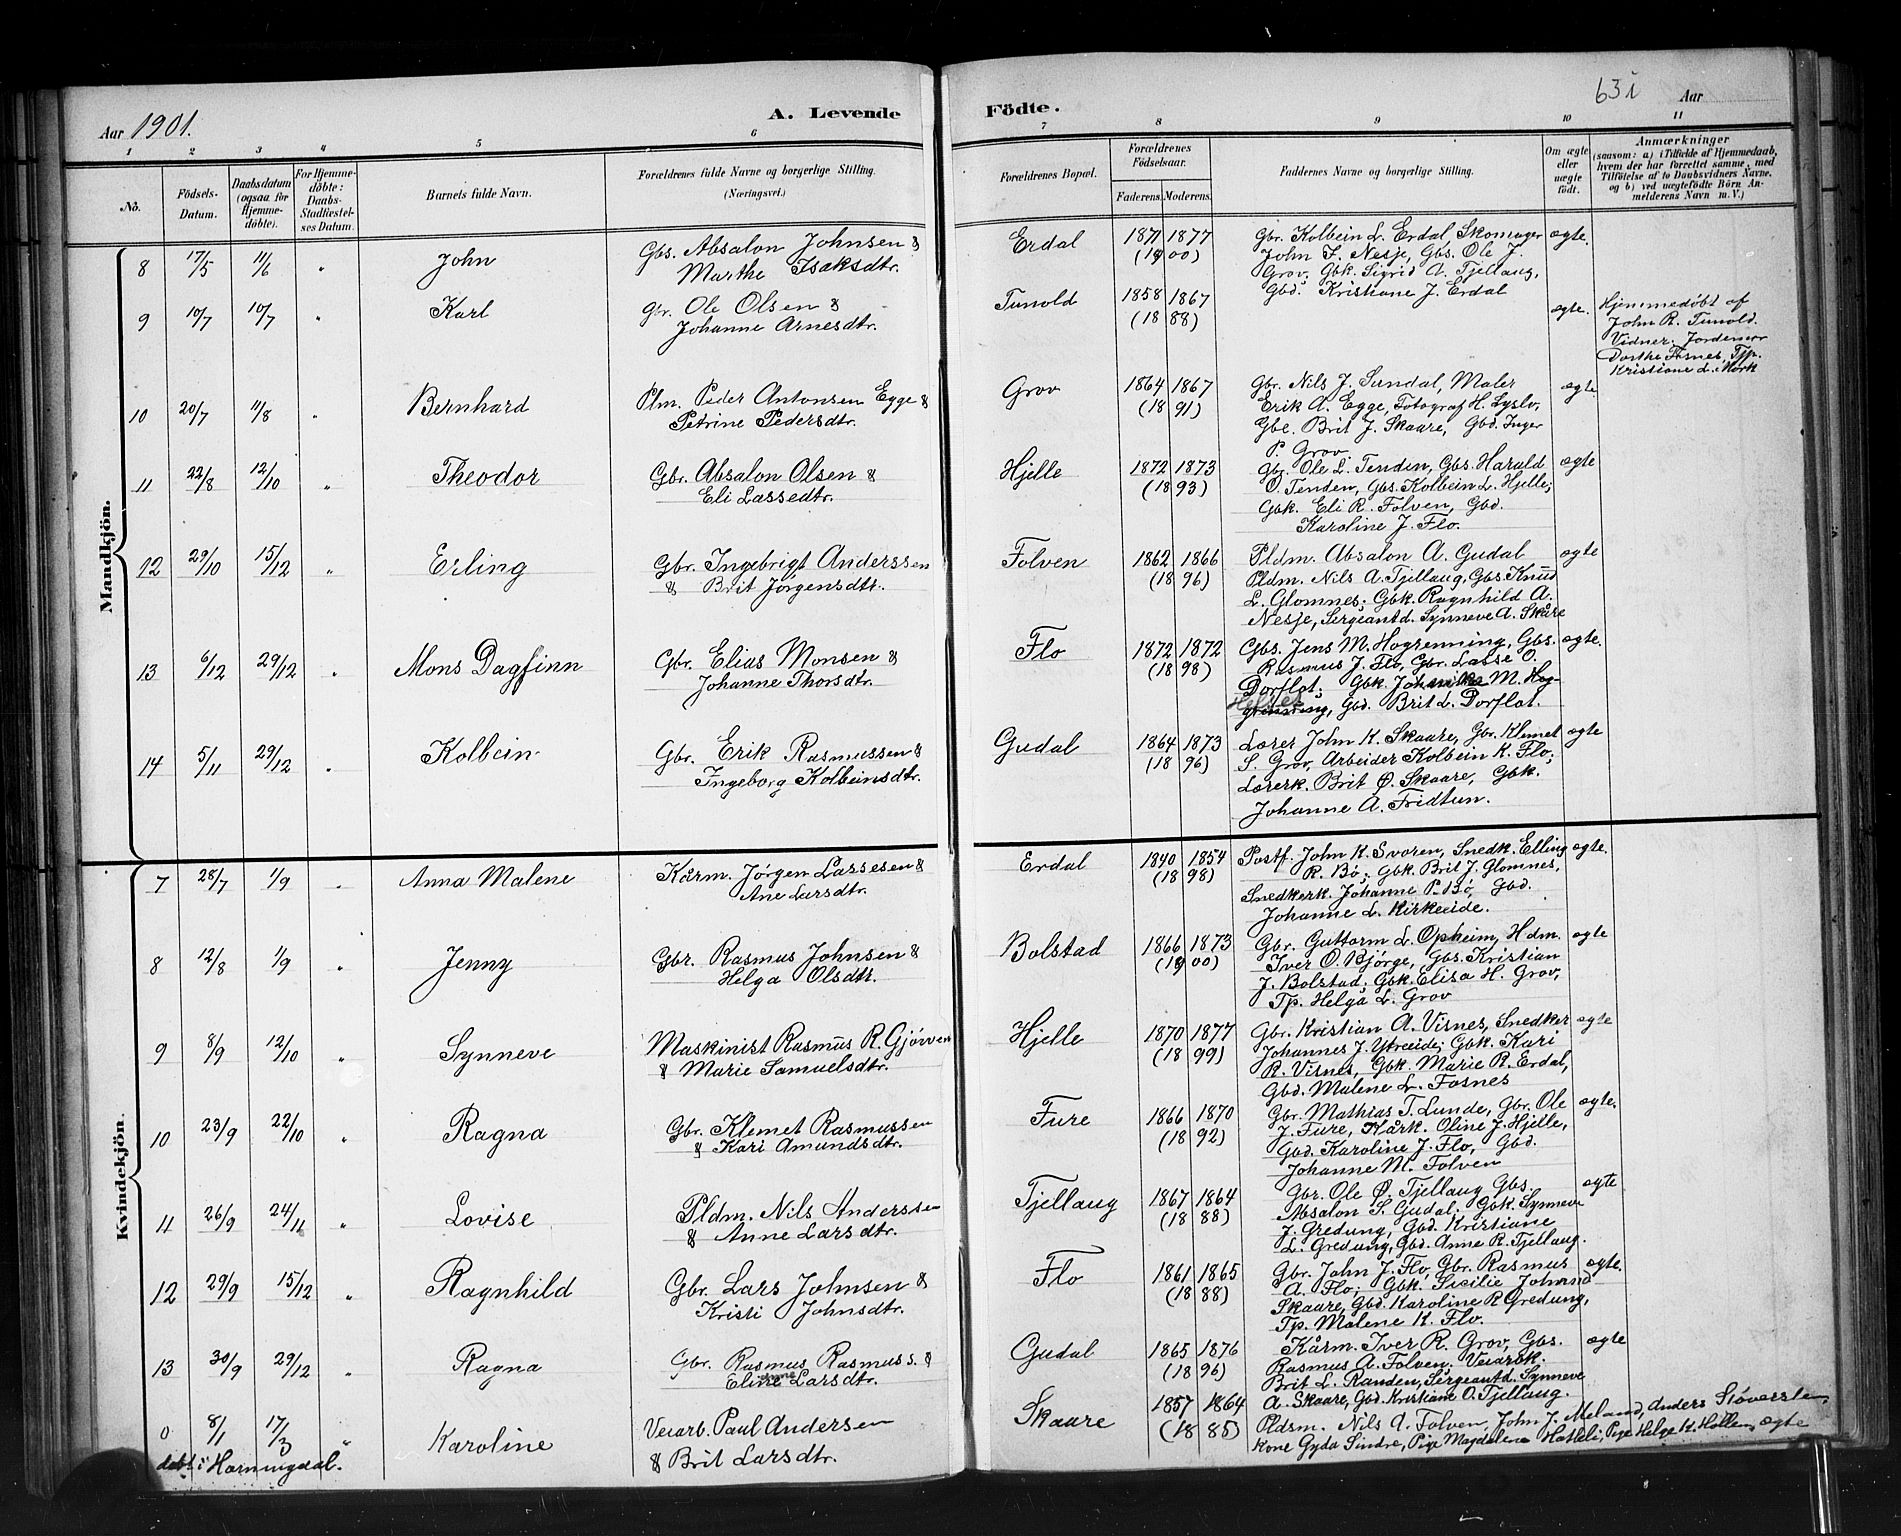 Aar 1901.
A. Levende Födte.
63 i
Aar
1 2 3 4 5 6 7 8 9 10 11
No.
Födsels-Datum.
Daabsdatum (ogsaa for Hjemme-döbte).
For Hjemme-döbte: Daabs-Stadfæstel-ses Datum.
Barnets fulde Navn.
Forældrenes fulde Navne og borgerlige Stilling. (Næringsvei.)
Forældrenes Bopæl.
Forældrenes Födselsaar.
Faderens. Moderens.
Faddernes Navne og borgerlige Stilling.
Om ægte eller uægte födt.
Anmærkninger
(saasom: a) i Tilfælde af Hjemmedaab, hvem der har forrettet samme, med Tilföielse af to Daabsvidners Navne, og b) ved uægtefödte Börn An-melderens Navn m. V.)
Mandkjön.
8 17/5 11/6 " John Gbs. Absalon Johnsen & Erdal 1871 1877 Gbr. Kolbein L. Erdal Skomager ægte.
Marthe Isaksdtr. (1900) John F. Nesje, Gbs. Ole J.
Grov, Gbk. Sigrid A. Tjellaug,
Gbd. Kristiane J. Erdal
9 10/7 10/7 " Karl Gbr. Ole Olsen & Tunold 1858 1867 ægte. Hjemmedøbt af
Johanne Arnesdtr. (1888) John R. Tunold.
Vidner: Jordemor
Dorthe Fosnes, Tjp.
Kristiane L. Mørk
10 20/7 11/8 " Bernhard Plm. Peder Antonsen Egge & Grov 1864 1867 Gbr. Nils J. Sundal, Maler ægte
Petrine Pedersdtr. (1891) Erik A. Egge, Fotograf H. Lyslo,
Gbe. Brit J. Skaare, Gbd. Inger
P. Grov
11 22/8 12/10 " Theodor Gbr. Absalon Olsen & Hjelle 1872 1873 Gbr. Ole L. Tenden, Gbs. Harald ægte
Eli Lassedtr. (1893) O. Tenden, Gbs. Kolbein L. Hjelle,
Gbk. Eli R. Folven, Gbd.
Karoline J. Flo.
12 29/10 15/12 " Erling Gbr. Ingebrigt Anderssen Folven 1862 1866 Pldm. Absalon A. Gudal ægte
& Brit Jørgensdtr. (1896) Pldm. Nils A. Tjellaug, Gbs. Knud
L. Glomnes. Gbk. Ragnhild A.
Nesje, Sergeantd. Synneve A. Skåre
13 6/12 29/12 " Mons Dagfinn Gbr. Elias Monsen & Flo 1872 1872 Gbs. Jens M. Hogrenning, Gbs. ægte.
Johanne Thorsdtr. (1898) Rasmus J. Flo, Gbr. Lasse O.
Dorflot; Gbk. M. Hog-
Gbd. Brit L. Dorflot.
14 5/11 29/12 " Kolbein Gbr. Erik Rasmussen & Gudal 1864 1873 Lærer John K. Skaare, Gbr. Klemet ægte
Ingeborg Kolbeinsdtr. (1896) S. Grov, Arbeider Kolbein K. Flo;
Lærerk. Brit Ø. Skaare, Gbk.
Johanne A. Fridtun.
Kvindekjön.
7 28/7 1/9 " Anna Malene Kårm. Jørgen Lassesen & Erdal 1840 1854 Postf. John K. Svoren, Snedk. Elling ægte.
Ane Larsdtr. (1898) R. Bø; Gbk. Brit J. Glomnes,
Snedkerk. Johanne P. Bø, Gbd.
Johanne L. Kirkeeide.
8 12/8 1/9 " Jenny Gbr. Rasmus Johnsen & Bolstad 1866 1873 Gbr. Guttorm L. Opheim, Hdm. ægte
Helga Olsdtr. (1900) Iver O. Bjørge, Gbs. Kristian
J. Bolstad; Gbk. Elisa H. Grov,
Tp. Helga L. Grov
9 8/9 12/10 " Synneve Maskinist Rasmus R. Gjørven Hjelle 1870 1877 Gbr. Kristian A. Visnes, Snedker ægte
& Marie Samuelsdtr. (1899) Johannes J. Ytreeide; Gbk. Kari
R. Visnes, Gbk. Marie R. Erdal,
Gbd. Malene L. Fosnes
10 23/9 22/10 " Ragna Gbr. Klemet Rasmussen Fure 1866 1870 Gbr. Mathias T. Lunde, Gbr. Ole ægte.
& Kari Amundsdtr. (1892) J. Fure, Kårk. Oline J. Hjelle,
Gbd. Karoline J. Flo, Gbd.
Johanne M. Folven
11 26/9 24/11 " Lovise Pldm. Nils Anderssen Tjellaug 1867 1864 Gbr. Ole Ø. Tjellaug Gbs. ægte
& Anne Larsdtr. (1888) Absalon S. Gudal. Gbk. Synneve
J. Gredung, Gbd. Kristiane
L. Gredung, Gbd. Anne R. Tjellaug.
12 29/9 15/12 " Ragnhild Gbr. Lars Johnsen & Flo 1861 1865 Gbr. John J. Flo, Gbr. Rasmus ægte.
Kristi Johnsdtr. (1888) A. Flo; Gbk. Sicilie
Skaare, Gbd. Karoline R Gredung,
Tp. Malene K. Flo.
13 30/9 29/12 " Ragna Gbr. Rasmus Rasmuss. & Gudal 1865 1876 Kårm. Iver R. Grov, Gbs. ægte
Eline Larsdtr. (1896) Rasmus A. Folven. Veiarbk.
Brit L. Randen, Sergeantd. Synneve
A. Skaare, Gbd. Kristiane O. Tjellaug.
0 8/1 17/3 " Karoline Veiarb. Paul Andersen Skaare 1857 1864 Pldsm. Nils A. Folven, John J. Meland, Anders
& Brit Larsdtr. (1885) Kone Gyda Sindre, Pige Magdalena Pige Helge K. Hollen, ægte
døbt i Horningdal.